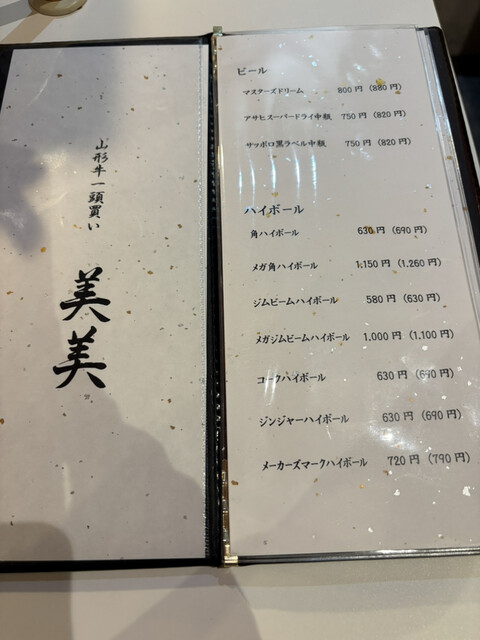 山形牛一頭買い
美美
ビール
マスターズドリーム 800円（880円）
アサヒスーパードライ中瓶 750円（820円）
サッポロ黒ラベル中瓶 750円（820円）
ハイボール
角ハイボール 630円（690円）
メガ角ハイボール 1,150円（1,260円）
ジムビームハイボール 580円（630円）
メガジムビームハイボール 1,000円（1,100円）
コークハイボール 630円（690円）
ジンジャーハイボール 630円（690円）
メーカーズマークハイボール 720円（790円）